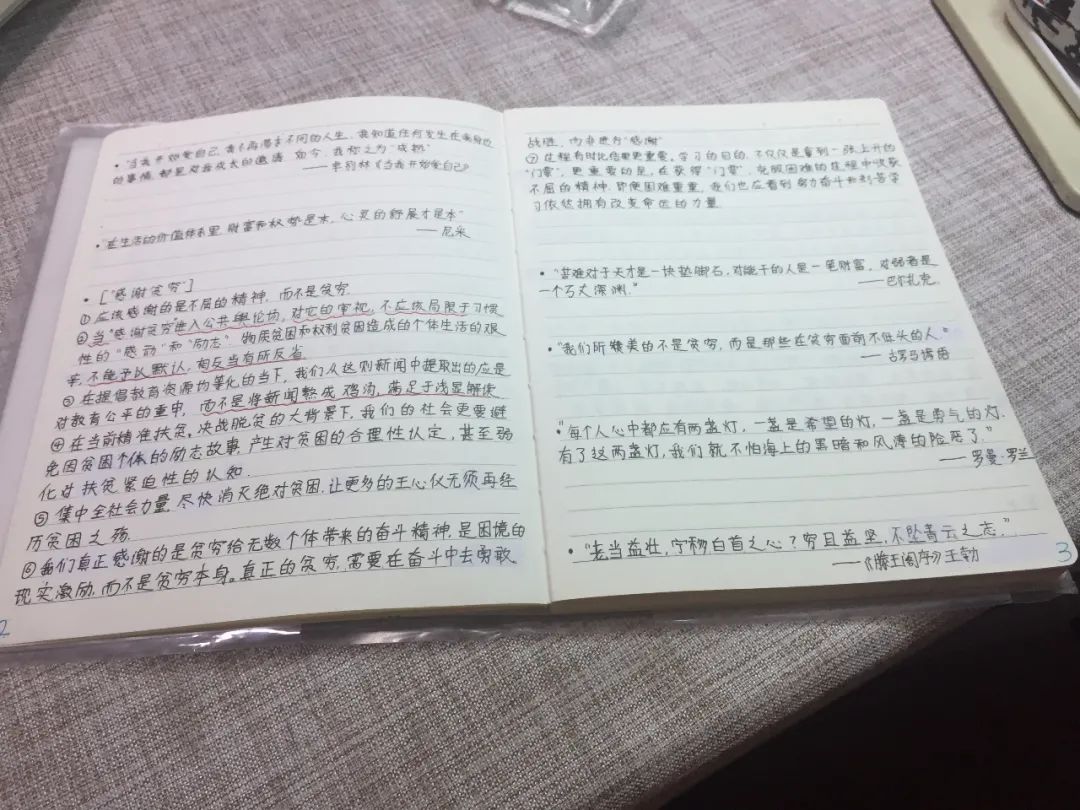 • "当我开始爱自己,我不再渴求不同的人生,我知道任何发生在我身边
的事情,都是对我成长的邀请.如今,我称之为"成熟"
——卓别林《当我开始爱自己》
• "在生活的价值体系里,财富和权势是末,心灵的舒展才是本"
——尼采
• ["感谢贫穷"]
①应该感谢的是不屈的精神,而不是贫穷.
②当"感谢贫穷"进入公共舆论场,对它的审视,不应该局限于习惯
性的"感动"和"励志".物质贫困和权利贫困造成的个体生活的艰
辛,不能予以默认,相反当有所反省.
③在提倡教育资源均等化的当下,我们从这则新闻中提取出的应是
对教育公平的重申,而不是将新闻熬成鸡汤,满足于浅显解读
④在当前精准扶贫,决战脱贫的大背景下,我们的社会更要避
免因贫困个体的励志故事,产生对贫困的合理性认定,甚至弱
化对扶贫紧迫性的认知
⑤集中全社会力量,尽快消灭绝对贫困,让更多的王心仪无须再经
历贫困之殇.
⑥我们真正感谢的是贫穷给无数个体带来的奋斗精神,是困境的
现实激励,而不是贫穷本身。真正的贫穷,需要在奋斗中去勇敢
2
战胜,而非进行"感谢"
⑦过程有时比结果更重要。学习的目的,不仅仅是拿到一张上升的
"门票",更重要的是,在获得"门票",克服困难的过程中收获
不屈的精神.即便困难重重,我们也应看到努力奋斗和刻苦学
习依然拥有改变命运的力量.
• "苦难对于天才是一块垫脚石,对能干的人是一笔财富,对弱者是
一个万丈深渊."
——巴尔扎克.
• "我们所赞美的不是贫穷,而是那些在贫穷面前不低头的人."
——古罗马谚语
• "每个人心中都应有两盏灯,一盏是希望的灯,一盏是勇气的灯.
有了这两盏灯,我们就不怕海上的黑暗和风涛的险恶了."
——罗曼·罗兰
• "老当益壮,宁移白首之心?穷且益坚,不坠青云之志."
——《滕王阁序》王勃
3